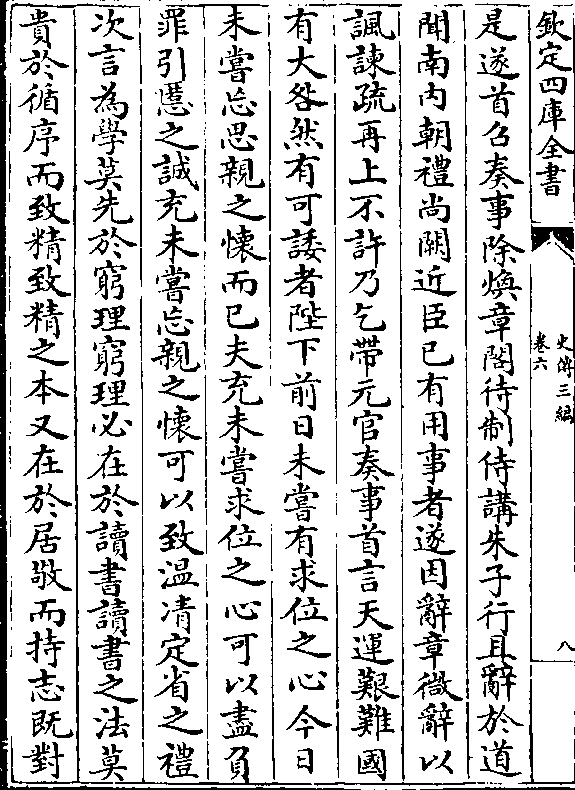 欽定四庫全書
史傳三編
卷六
八
是遂首召奏事除煥章閣待制侍講朱子行且辭於道
聞南内朝禮尚闕近臣已有用事者遂因辭章微辭以
諷諫疏再上不許乃乞帶元官奏事首言天運艱難國
有大咎然有可諉者陛下前日未嘗有求位之心今日
未嘗忘思親之懷而已夫充未嘗求位之心可以盡負
罪引慝之誠充未嘗忘親之懷可以致温凊定省之禮
次言為學莫先於窮理窮理必在於讀書讀書之法莫
貴於循序而致精致精之本又在於居敬而持志既對